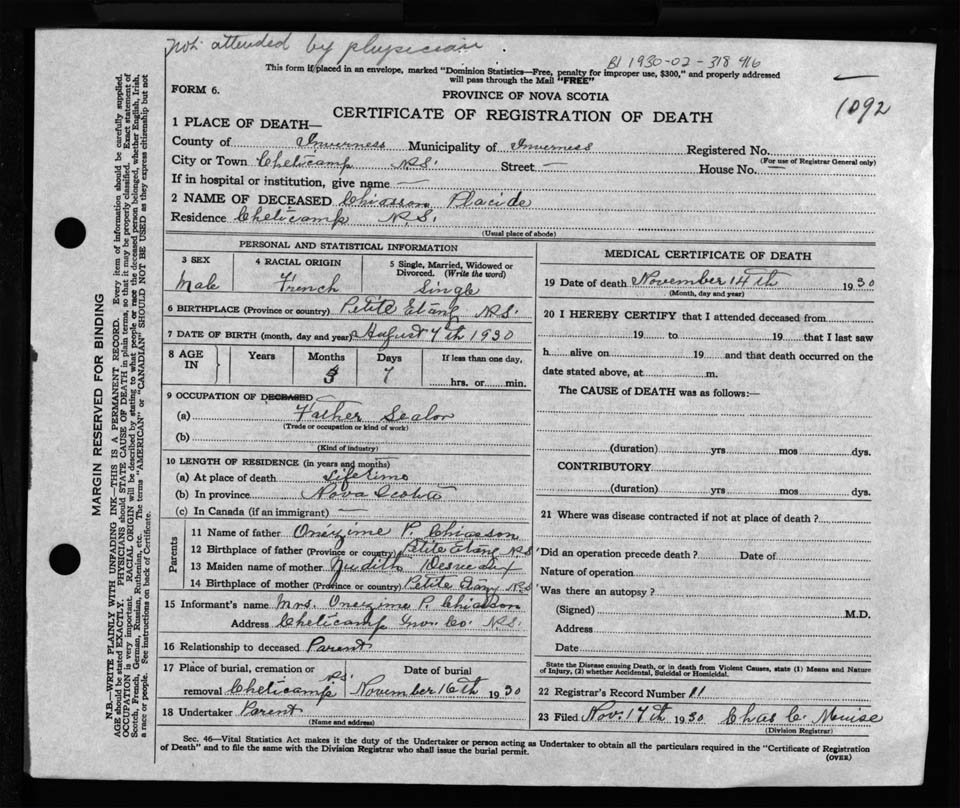 Not attended by physician
B1 1930-02-318 916
This form if placed in an envelope, marked "Dominion Statistics—Free, penalty for improper use, $300," and properly addressed
will pass through the Mail "FREE"
FORM 6.
PROVINCE OF NOVA SCOTIA
1092
CERTIFICATE OF REGISTRATION OF DEATH
1 PLACE OF DEATH—
County of Inverness Municipality of Inverness Registered No.
(For use of Registrar General only)
City or Town Cheticamp N.S. Street — House No. —
If in hospital or institution, give name —
2 NAME OF DECEASED Chiasson Placide
Residence Cheticamp N.S.
(Usual place of abode)
PERSONAL AND STATISTICAL INFORMATION
3 SEX
Male
4 RACIAL ORIGIN
French
5 Single, Married, Widowed or
Divorced. (Write the word)
Single
6 BIRTHPLACE (Province or country) Petite Etang N.S.
7 DATE OF BIRTH (month, day and year) August 7th 1930
8 AGE IN
Years Months Days If less than one day,
3 7 hrs. or min.
9 OCCUPATION OF DECEASED
(a) Father Sealor
(Trade or occupation or kind of work)
(b)
(Kind of industry)
10 LENGTH OF RESIDENCE (in years and months)
(a) At place of death Lifetime
(b) In province Nova Scotia
(c) In Canada (if an immigrant) —
Parents
11 Name of father Onezime P. Chiasson
12 Birthplace of father (Province or country) Petite Etang N.S
13 Maiden name of mother Judith Desveaux
14 Birthplace of mother (Province or country) Petite Etang N.S
15 Informant's name Mrs. Onezime P. Chiasson
Address Cheticamp Inv. Co. N.S.
16 Relationship to deceased Parent
17 Place of burial, cremation or Date of burial
removal Cheticamp N.S. November 16th 1930
18 Undertaker Parent
(Name and address)
MEDICAL CERTIFICATE OF DEATH
19 Date of death November 14th 1930
(Month, day and year)
20 I HEREBY CERTIFY that I attended deceased from
19 to 19 that I last saw
h alive on 19 and that death occurred on the
date stated above, at m.
The CAUSE of DEATH was as follows:-
(duration) yrs mos dys.
CONTRIBUTORY
(duration) yrs mos dys.
21 Where was disease contracted if not at place of death?
Did an operation precede death? Date of
Nature of operation
Was there an autopsy?
(Signed) M.D.
Address
Date
State the Disease causing Death, or in death from Violent Causes, state (1) Means and Nature
of Injury, (2) whether Accidental, Suicidal or Homicidal.
22 Registrar's Record Number 11
23 Filed Nov. 17th 1930 Chas C. Muise
(Division Registrar)
Sec. 46—Vital Statistics Act makes it the duty of the Undertaker or person acting as Undertaker to obtain all the particulars required in the "Certificate of Registration
of Death" and to file the same with the Division Registrar who shall issue the burial permit.
(OVER)
MARGIN RESERVED FOR BINDING
N.B.—WRITE PLAINLY WITH UNFADING INK—THIS IS A PERMANENT RECORD. Every item of information should be carefully supplied.
AGE should be stated EXACTLY. PHYSICIANS should STATE CAUSE OF DEATH in plain terms, so that it may be properly classified. Exact statement of
OCCUPATION is very important. RACIAL ORIGIN will be described by stating to what people or race the deceased person belonged, whether English, Irish,
Scotch, French, German, Russian, Ruthenian, etc. The terms "AMERICAN" or "CANADIAN" SHOULD NOT BE USED as they express citizenship but not
a race or people. See instructions on back of Certificate.